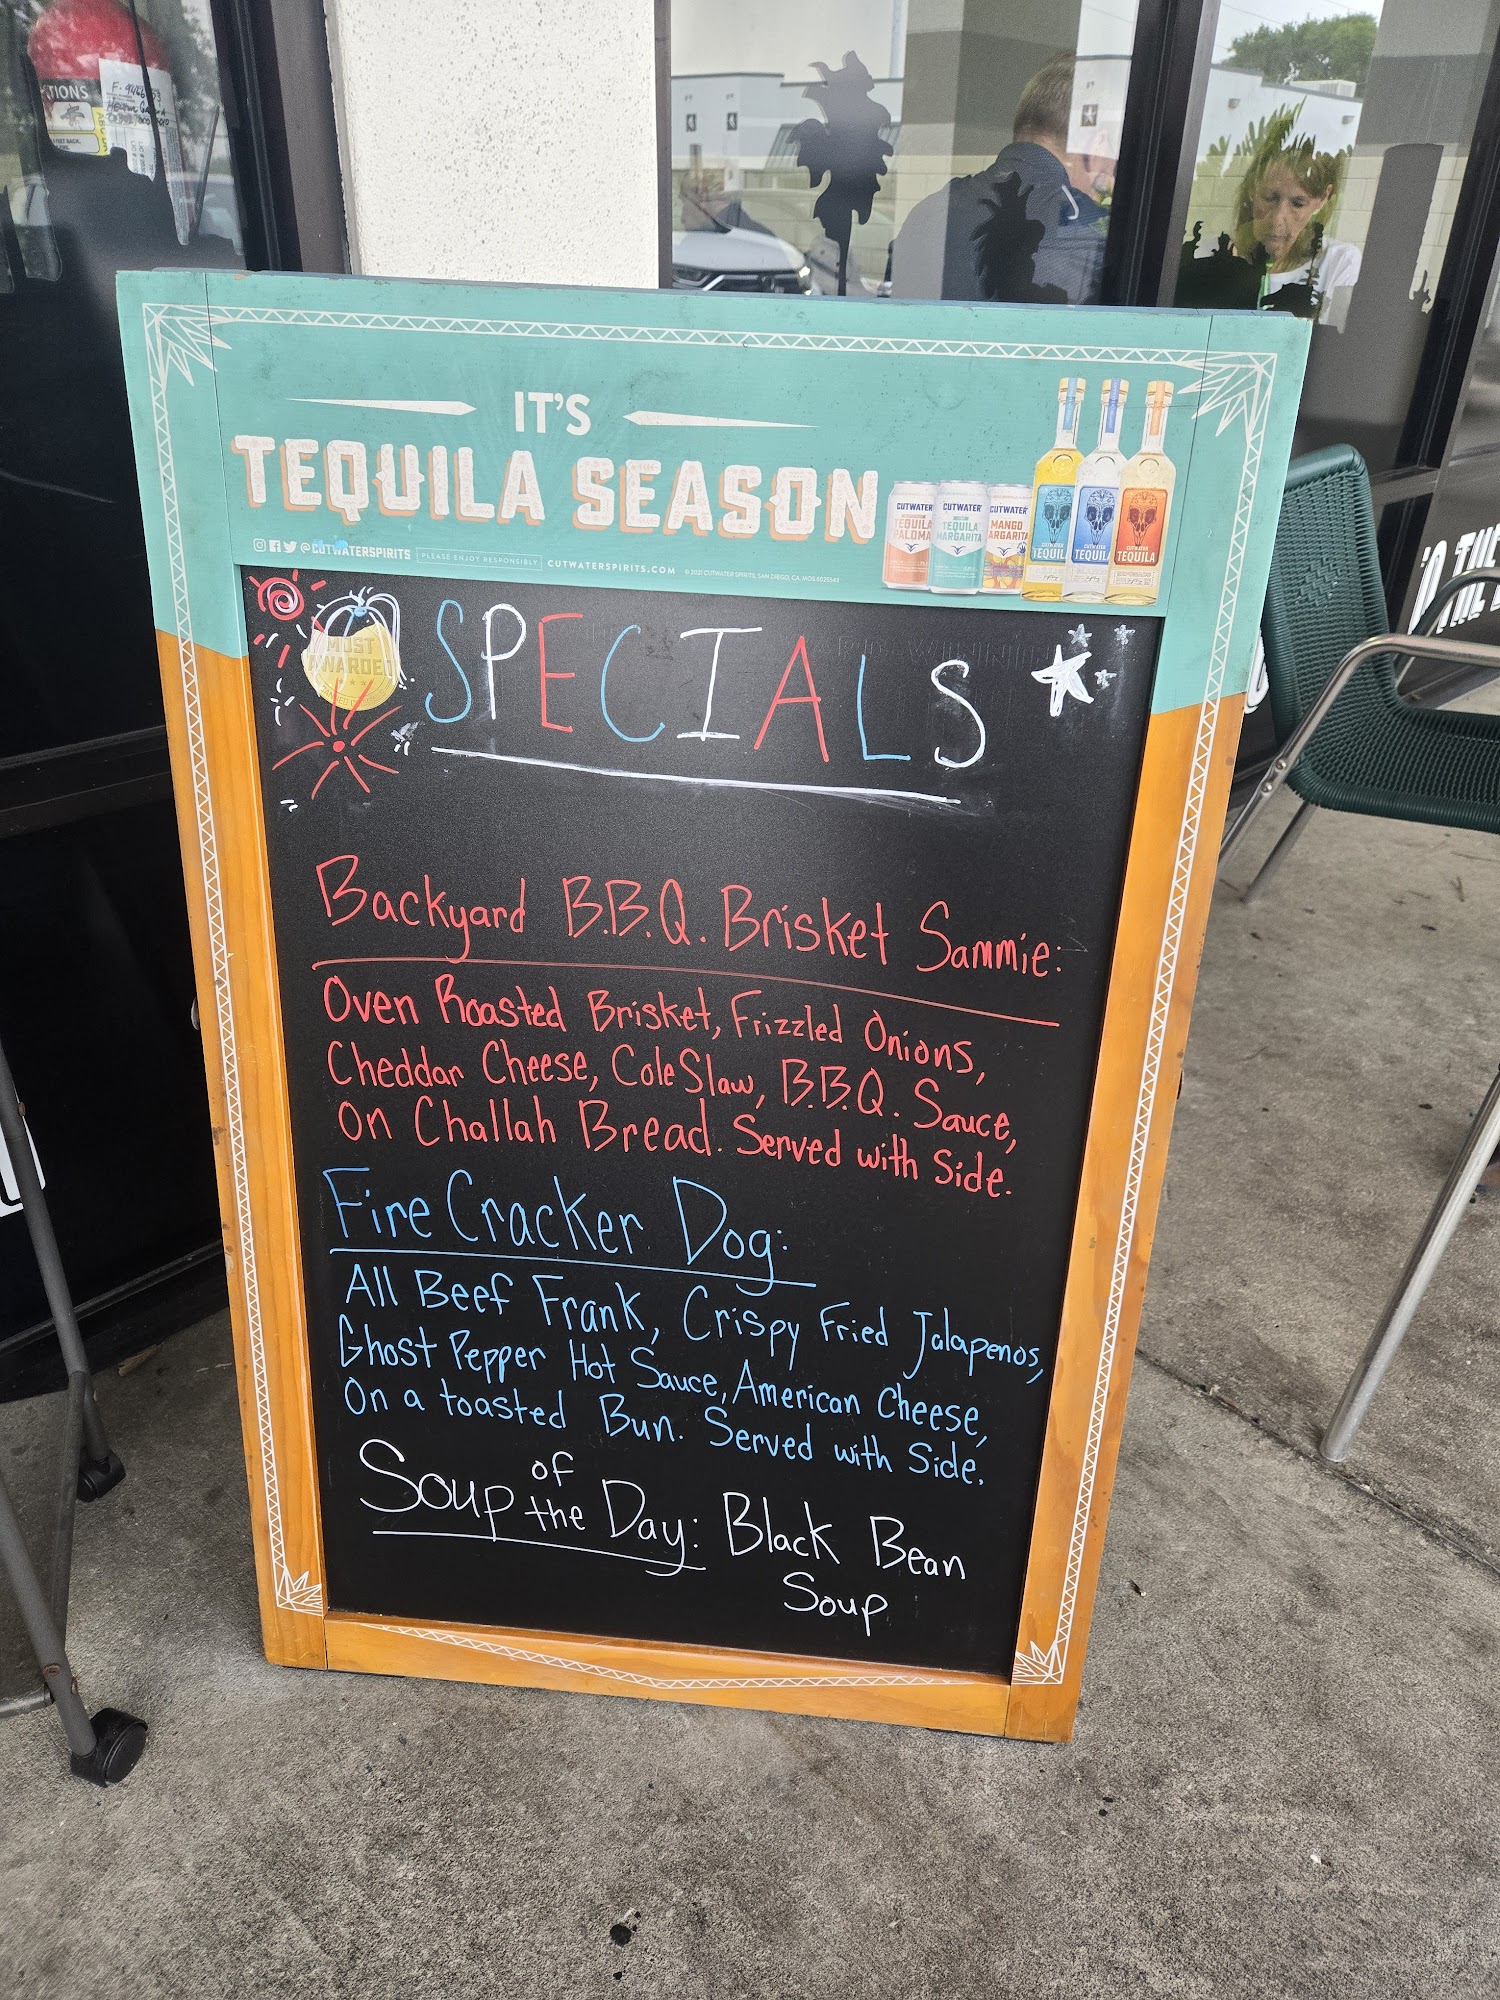 IT'S
TEQUILA SEASON
@CUTWATERSPIRITS PLEASE ENJOY RESPONSIBLY CUTWATERSPIRITS.COM © 2021 CUTWATER SPIRITS, SAN DIEGO, CA
CUTWATER TEQUILA PALOMA
CUTWATER TEQUILA MARGARITA
CUTWATER MANGO MARGARITA
TEQUILA
CUTWATER TEQUILA
CUTWATER TEQUILA
MOST
AWARDED
SPECIALS
Backyard B.B.Q. Brisket Sammie:
Oven Roasted Brisket, Frizzled Onions,
Cheddar Cheese, Cole Slaw, B.B.Q. Sauce,
On Challah Bread. Served with Side.
Fire Cracker Dog:
All Beef Frank, Crispy Fried Jalapenos,
Ghost Pepper Hot Sauce, American Cheese,
On a toasted Bun. Served with Side.
Soup of the Day: Black Bean
Soup